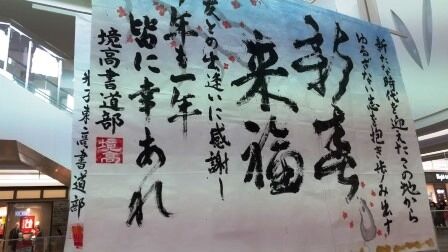 新たな時代を迎えたこの地から
ゆるぎない志を抱き歩み出す
新春
来福
友との出逢いに感謝し
今年も一年
皆に幸あれ
境高書道部
境高
米子東高書道部